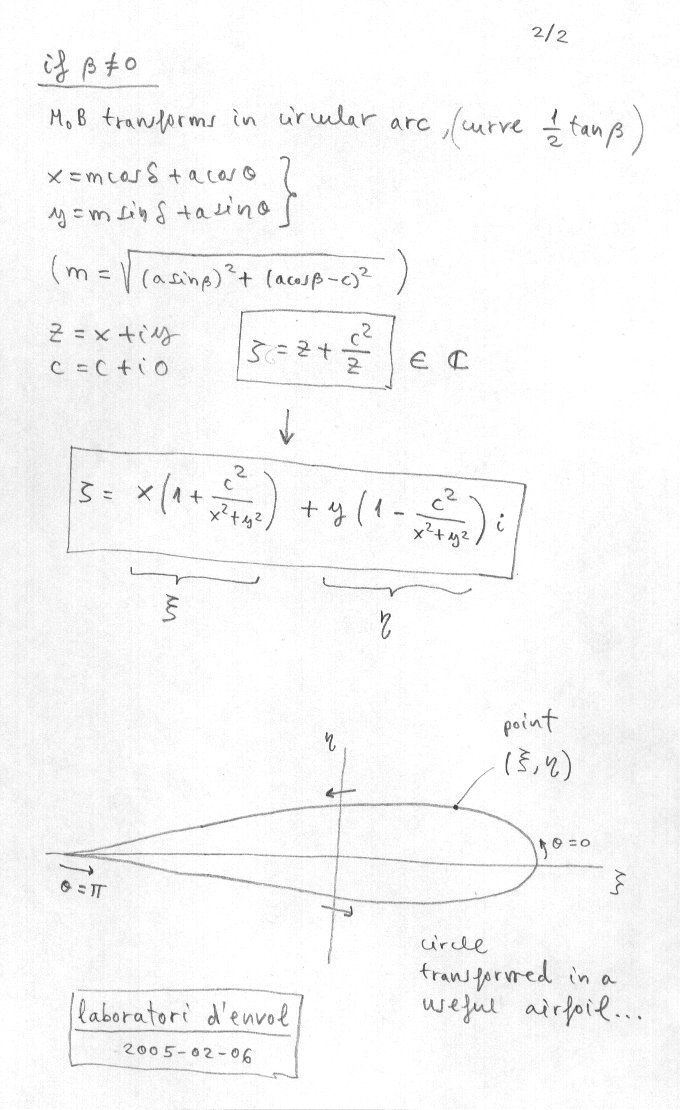 2/2
if β≠0
M₀B transforms in circular arc, (curve 1/2 tanβ)
x=mcosδ+acosθ
y=m sinδ+asinθ
(m=√((asinβ)²+(acosβ-c)²))
z=x+iy
c=c+i0
ζ=z+c²/z ∈ ℂ
↓
ζ= x(1+c²/(x²+y²)) +y(1-c²/(x²+y²))i
ξ η
point
(ξ,η)
η
θ=0
θ=π
ξ
circle
transformed in a
useful airfoil...
laboratori d'envol
2005-02-06